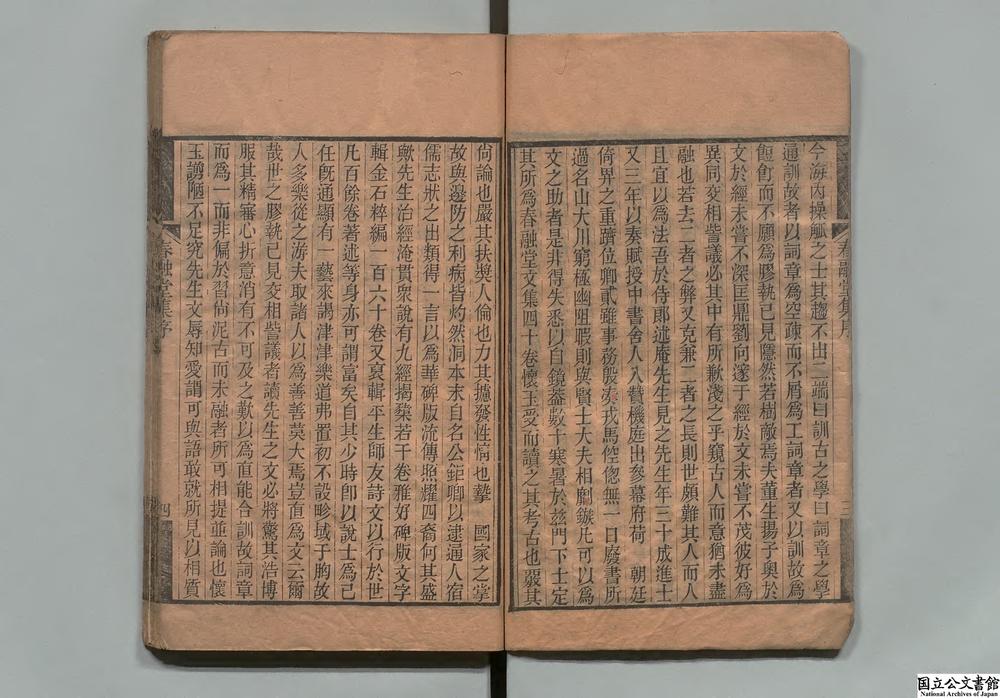 今海內操觚之士其趨不出二端曰訓古之學曰詞章之學
通訓故者以詞章爲空疎而不屑爲工詞章者又以訓故爲
餖飣而不願爲膠執己見隱然若樹敵焉夫董生揚子奧於
文於經未嘗不深匡鼎劉向邃于經於文未嘗不茂彼好爲
異同交相訾議必其中有所歉淺之乎窺古人而意猶未盡
融也若去二者之弊又克兼二者之長則世頗難其人而人
且宜以爲法吾於侍郎述庵先生見之先生年三十成進士
又三年以奏賦授中書舍人入贊機庭出參幕府荷 朝廷
倚畀之重躋位卿貳雖事務殷湊戎馬倥偬無一日廢書所
過名山大川窮極幽阻暇則與賢士大夫相劘鏃凡可以爲
文之助者是非得失悉以自鏡葢數十寒暑於兹門下士定
其所爲春融堂文集四十卷懷玉受而讀之其考古也嚴其
春融堂集序
三
尙論也嚴其扶奬人倫也力其攄發性情也摯 國家之掌
故與邊防之利病皆灼然洞本末自名公鉅卿以逮通人宿
儒志狀之出類得一言以爲華碑版流傳照耀四裔何其盛
歟先生治經淹貫衆說有九經揭櫫若干卷雅好碑版文字
輯金石粹編一百六十卷又裒輯平生師友詩文以行於世
凡百餘卷著述等身亦可謂富矣自其少時卽以說士爲己
任旣通顯有一藝來謁津津樂道弗置初不設畛域于胸故
人多樂從之游夫取諸人以爲善善莫大焉豈直爲文云爾
哉世之膠執己見交相訾議者讀先生之文必將驚其浩博
服其精審心折意消有不可及之歎以爲直能合訓故詞章
而爲一而非偏於習尙泥古而未融者所可相提並論也懷
玉譾陋不足究先生文辱知愛謂可與語敢就所見以相質
春融堂集序
四
国立公文書館
National Archives of Japan